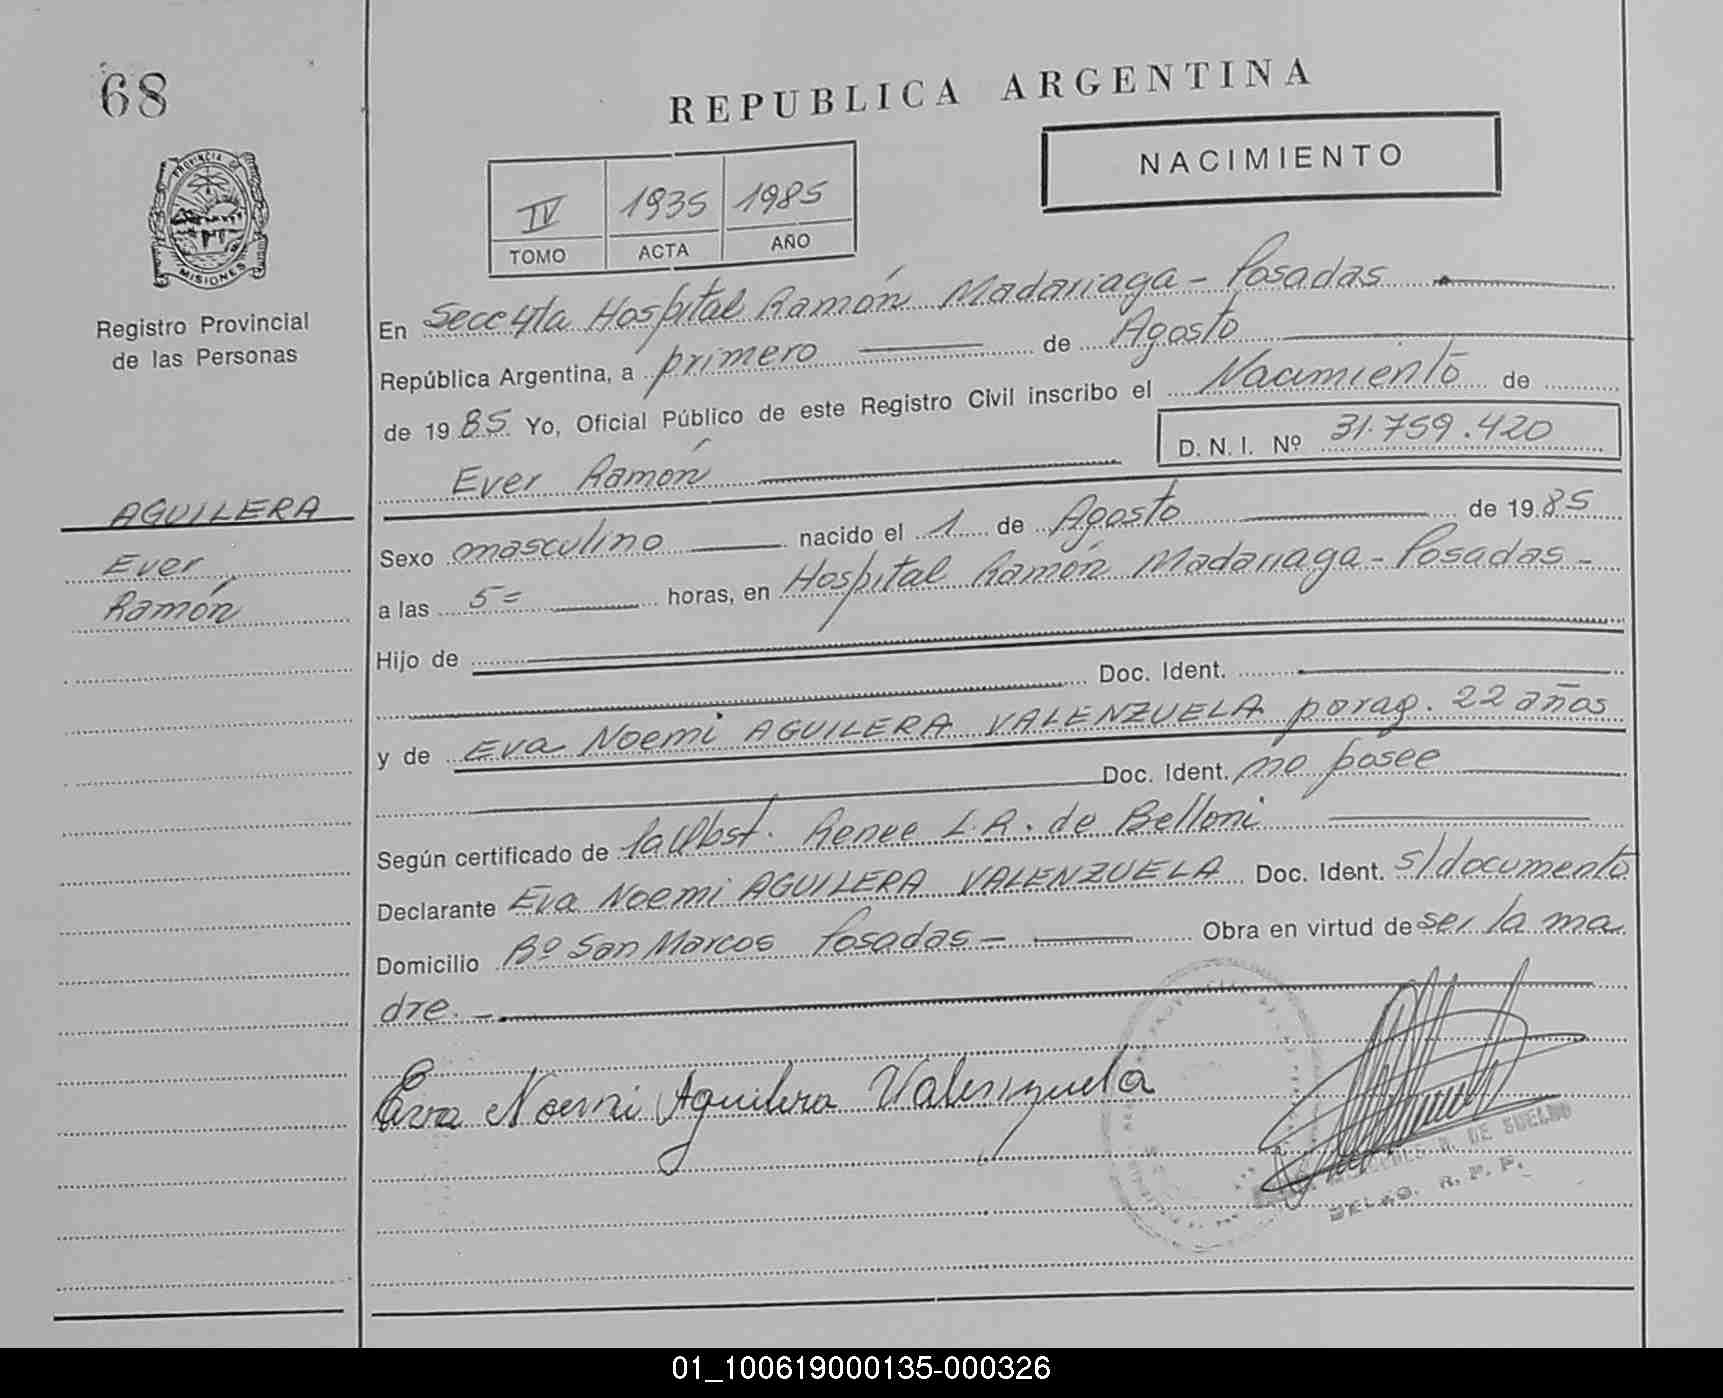 68
REPUBLICA ARGENTINA
NACIMIENTO
IV 1935 1985
TOMO ACTA AÑO
PROVINCIA DE
MISIONES
Registro Provincial
de las Personas
En Secc 4ta Hospital Ramón Madariaga - Posadas
República Argentina, a primero de Agosto
de 1985 Yo, Oficial Público de este Registro Civil inscribo el Nacimiento de
D. N. I. Nº 31.759.420
Ever Ramón
AGUILERA
Ever
Ramón
Sexo masculino nacido el 1 de Agosto de 1985
a las 5= horas, en Hospital Ramón Madariaga - Posadas -
Hijo de
Doc. Ident.
y de Eva Noemi AGUILERA VALENZUELA parag. 22 años
Doc. Ident. no posee
Según certificado de la Obst. Renee L.R. de Belloni
Declarante Eva Noemi AGUILERA VALENZUELA Doc. Ident. s/documento
Domicilio Bº San Marcos Posadas - Obra en virtud de ser la ma
dre. -
Eva Noemi Aguilera Valenzuela
DE SUELDO
DELEG. R. P. P.
01_100619000135-000326